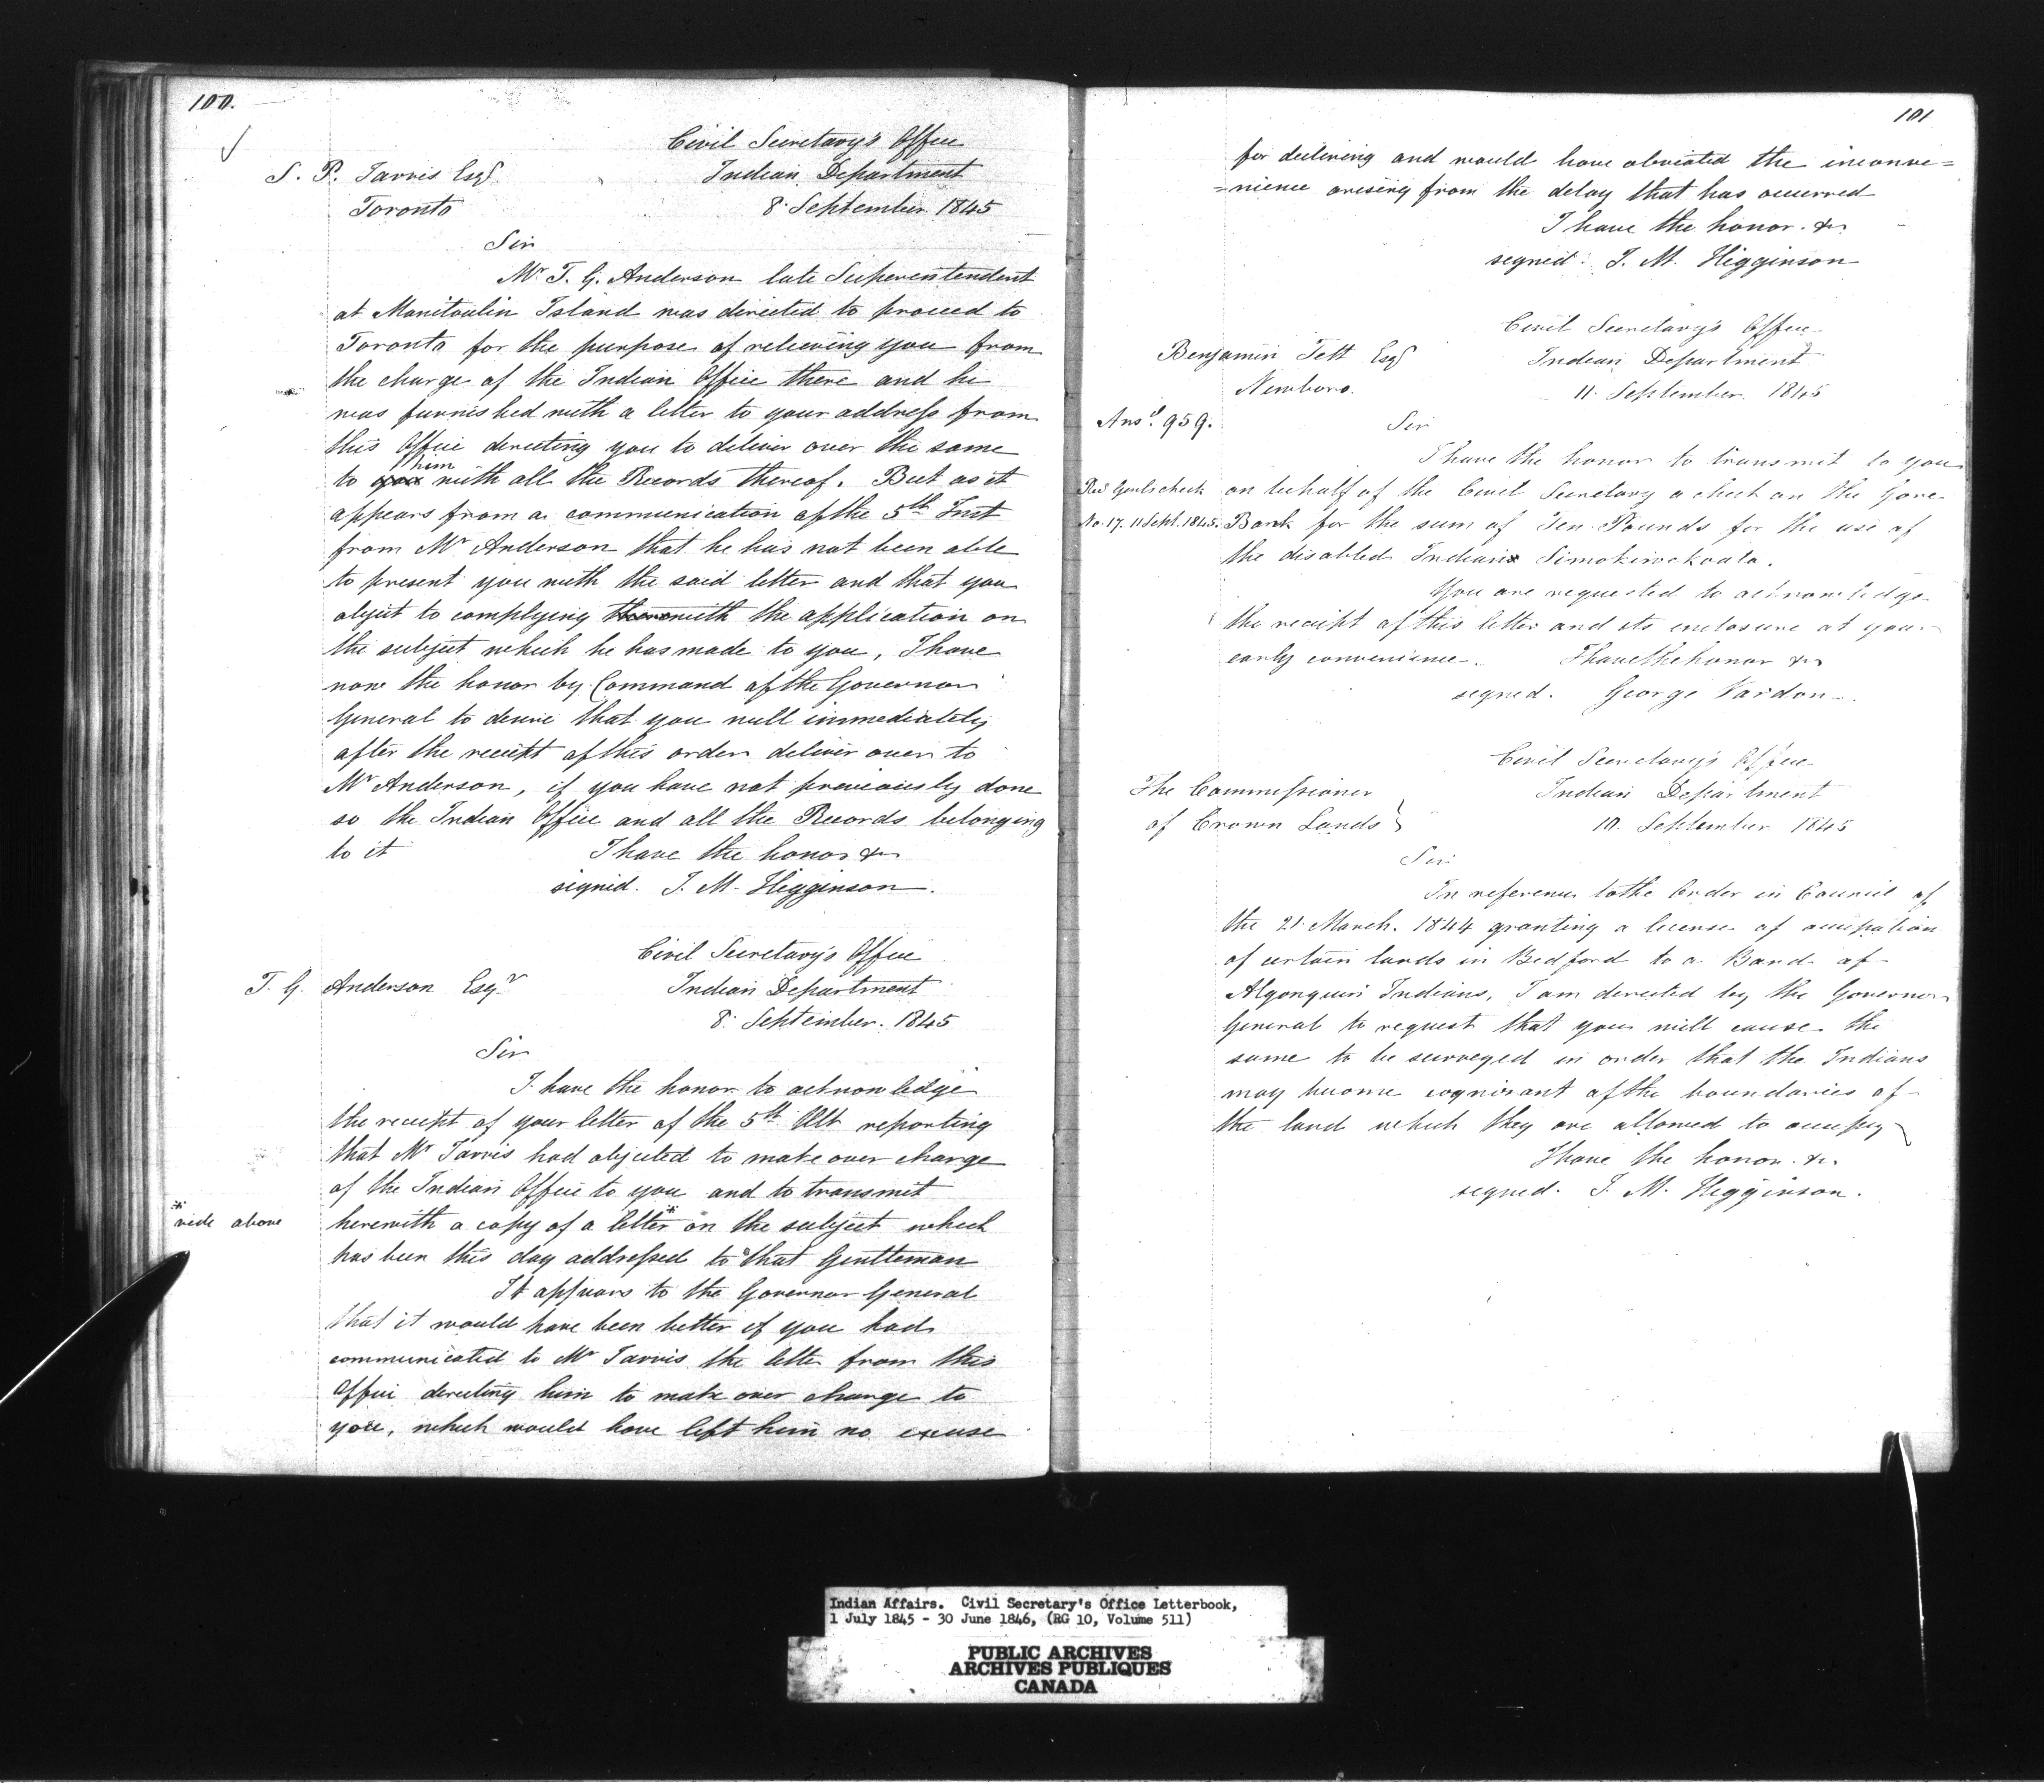 100.
Civil Secretary's Office
S. P. Jarvis Esqr Indian Department
Toronto 8 September 1845
Sir
Mr T. G. Anderson late Superintendent
at Manitoulin Island was directed to proceed to
Toronto for the purpose of relieving you from
the charge of the Indian Office there and he
was furnished with a letter to your address from
this Office directing you to deliver over the same
him
to you with all the Records thereof. But as it
appears from a communication of the 5th Inst
from Mr Anderson that he has not been able
to present you with the said letter and that you
object to complying therewith the application on
the subject which he has made to you, I have
now the honor by Command of the Governor
General to desire that you will immediately
after the receipt of this order deliver over to
Mr Anderson, if you have not previously done
so the Indian Office and all the Records belonging
to it I have the honor &c
signed. J. M. Higginson.
Civil Secretary's Office
T. G. Anderson Esqr Indian Department
8 September. 1845
Sir
I have the honor to acknowledge
the receipt of your letter of the 5th Ult reporting
that Mr Jarvis had objected to make over charge
of the Indian Office to you and to transmit
* vide above herewith a copy of a letter* on the subject which
has been this day addressed to that Gentleman
It appears to the Governor General
that it would have been better if you had
communicated to Mr Jarvis the letter from this
Office directing him to make over charge to
you, which would have left him no excuse
101
for declining and would have obviated the inconve=
=nience arising from the delay that has occurred
I have the honor. &c
signed: J. M. Higginson
Civil Secretary's Office
Benjamin Tett Esqr Indian Department
Newboro. 11 September 1845
Ansd. 959. Sir
I have the honor to transmit to you
on behalf of the Civil Secretary a check on the Gore
No. 17. 11 Sept. 1845. Bank for the sum of Ten Pounds for the use of
the disabled Indian
You are requested to acknowledge
the receipt of this letter and its enclosure at your
early convenience. I have the honor &c
signed. George Vardon.
Civil Secretary's Office
The Commissioner Indian Department
of Crown Lands } 10. September 1845
Sir
In reference to the Order in Council of
the 21 March. 1844 granting a license of occupation
of certain lands in Bedford to a Band of
Algonquin Indians, I am directed by the Governor
General to request that you will cause the
same to be surveyed in order that the Indians
may become cognizant of the boundaries of
the land which they are allowed to occupy
I have the honor. &c.
signed. J. M. Higginson.
Indian Affairs. Civil Secretary's Office Letterbook,
1 July 1845 - 30 June 1846, (RG 10, Volume 511)
PUBLIC ARCHIVES
ARCHIVES PUBLIQUES
CANADA